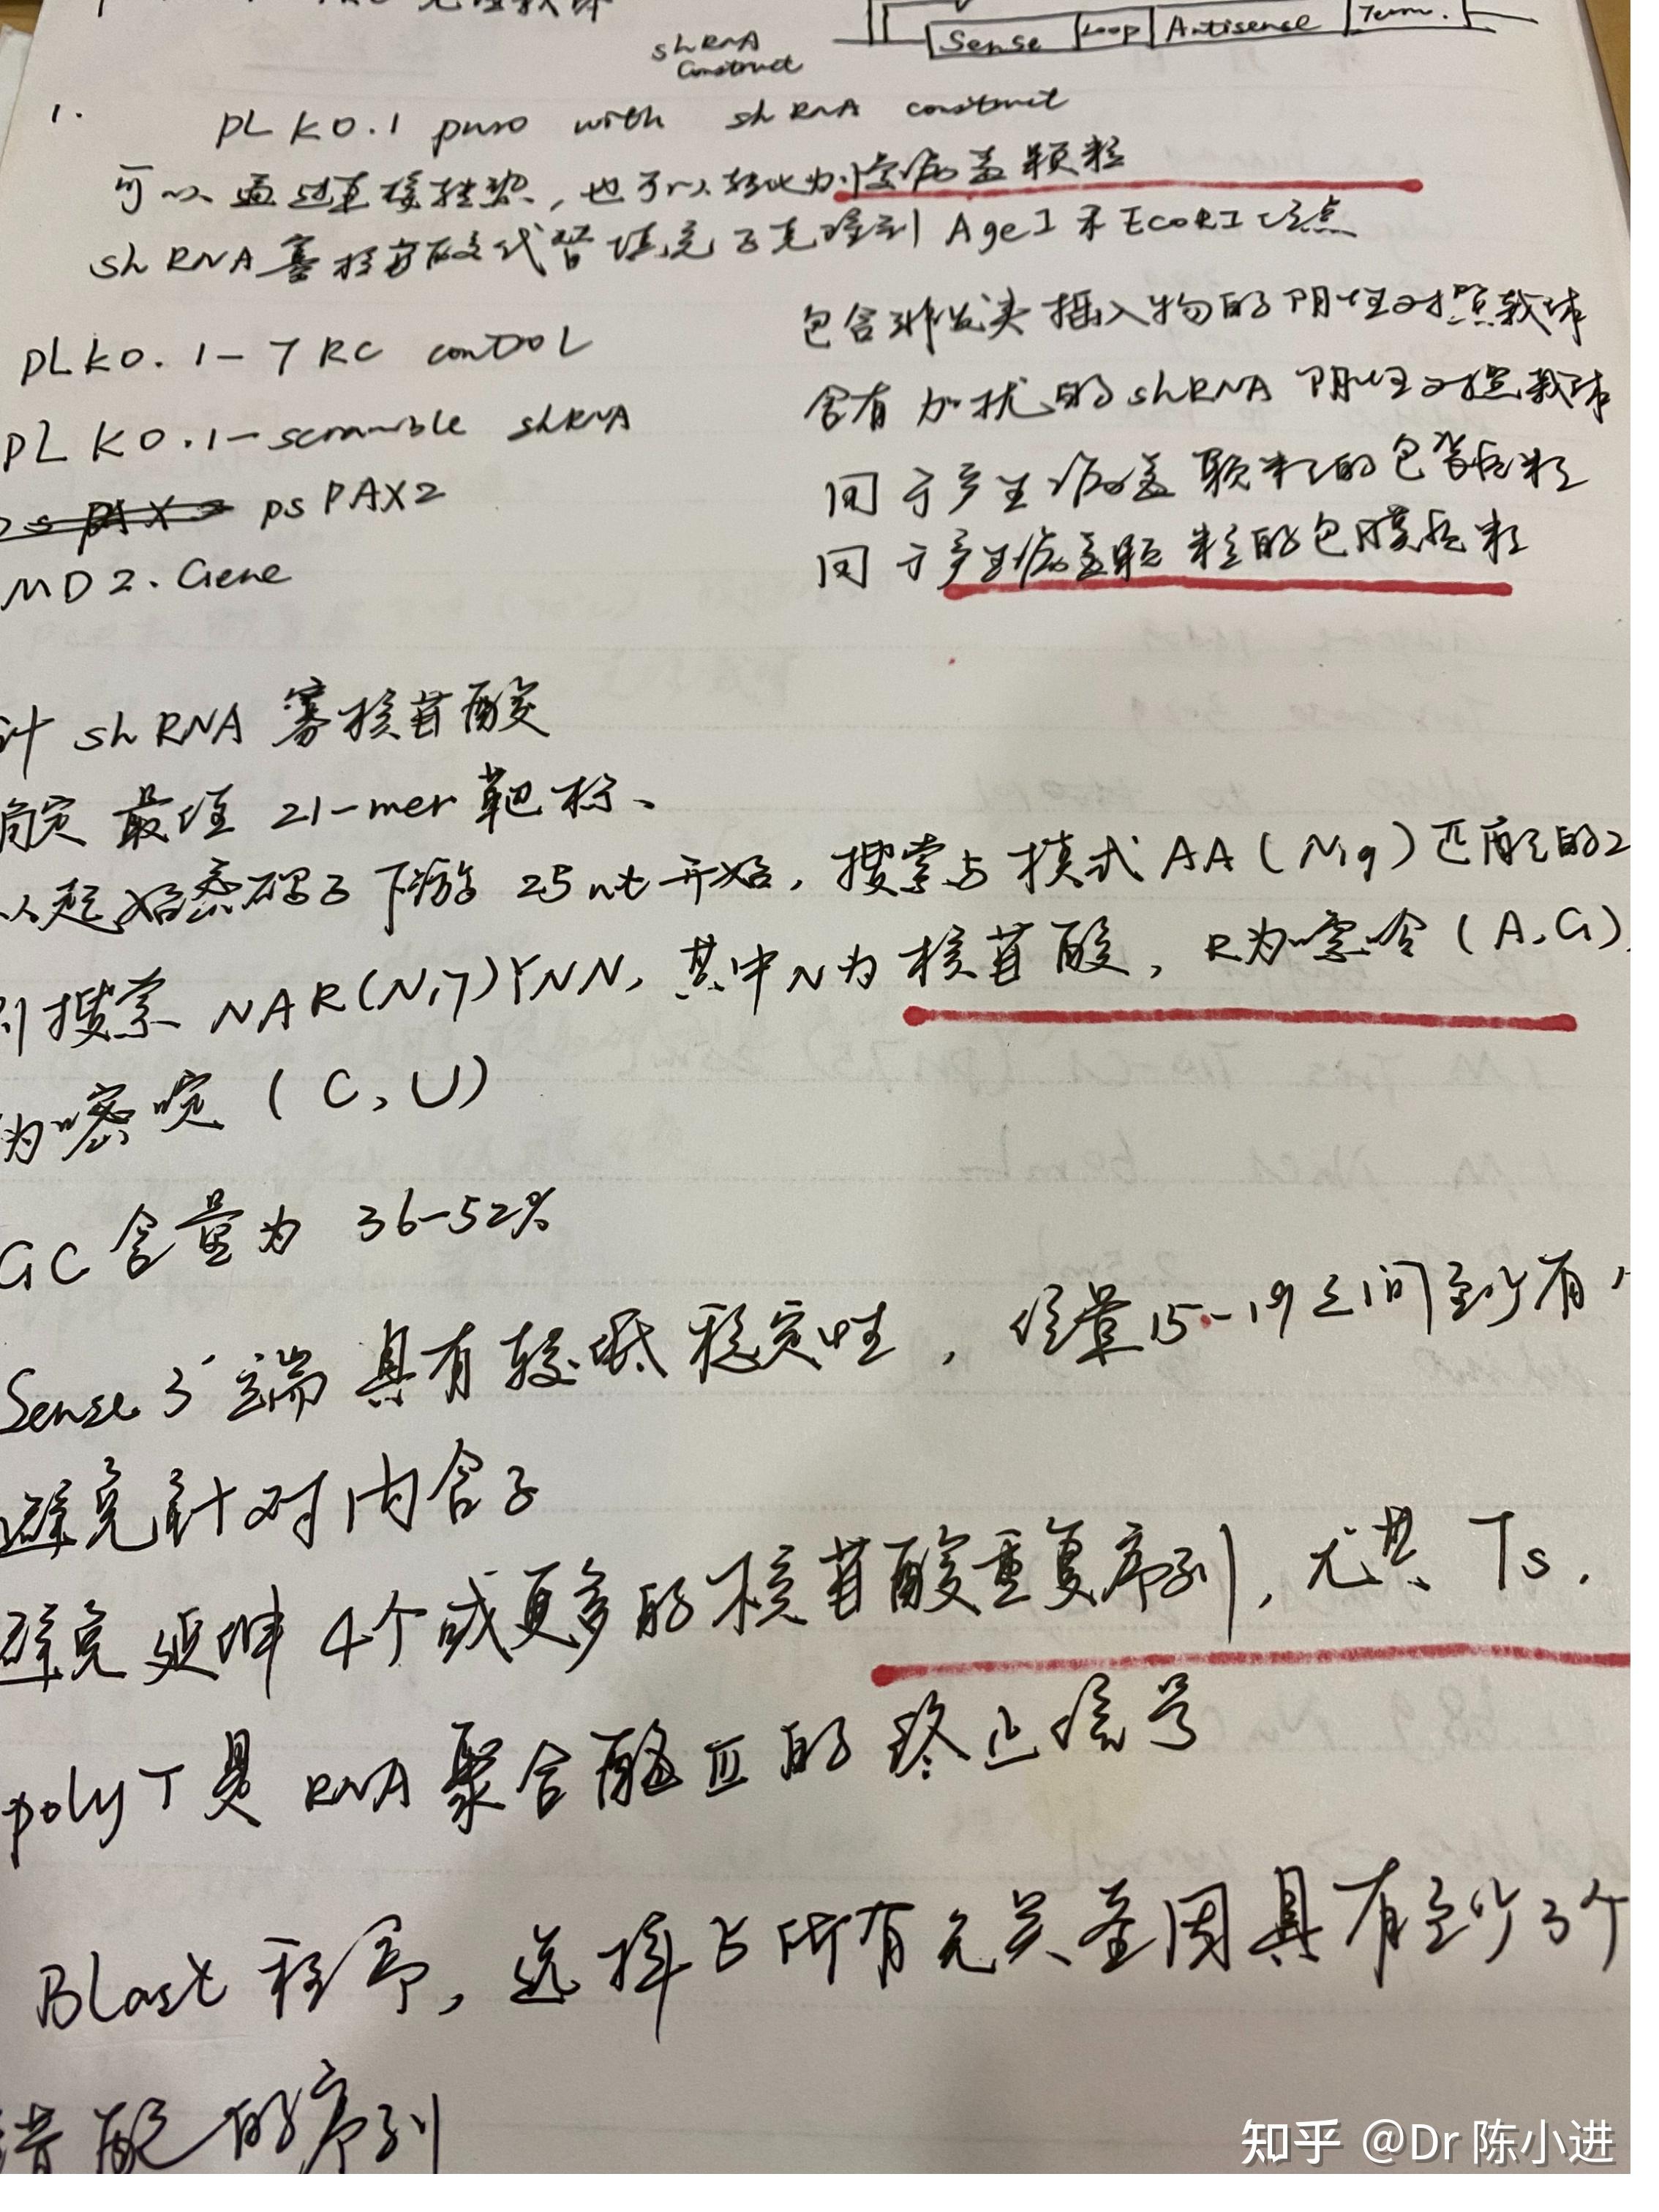 Sense Loop Antisense Term.
shRNA
Construct
1.
pLK0.1 puro with shRNA construct
可以通过直接转染，也可以转化为慢病毒颗粒
shRNA寡核苷酸代替填充子克隆到AgeI和EcoRI位点
pLK0.1-TRC control 包含非发夹插入物的阴性对照载体
pLK0.1-scramble shRNA 含有加扰的shRNA阴性对照载体
psPAX2 用于产生病毒颗粒的包装质粒
MD2.Gene 用于产生病毒颗粒的包膜质粒
计shRNA寡核苷酸
确定最佳21-mer靶标、
从起始密码子下游25nt开始，搜索与模式AA(N19)匹配的2
则搜索NAR(N17)YNN，其中N为核苷酸，R为嘌呤(A,G)
为嘧啶(C,U)
GC含量为36-52%
Sense 3'端具有较低稳定性，位置15-19之间至少有
避免针对内含子
避免延伸4个或更多的核苷酸重复序列，尤其Ts.
polyT是RNA聚合酶III的终止信号
Blast程序，选择与所有无关基因具有至少3个
错配的序列
知乎 @Dr 陈小进